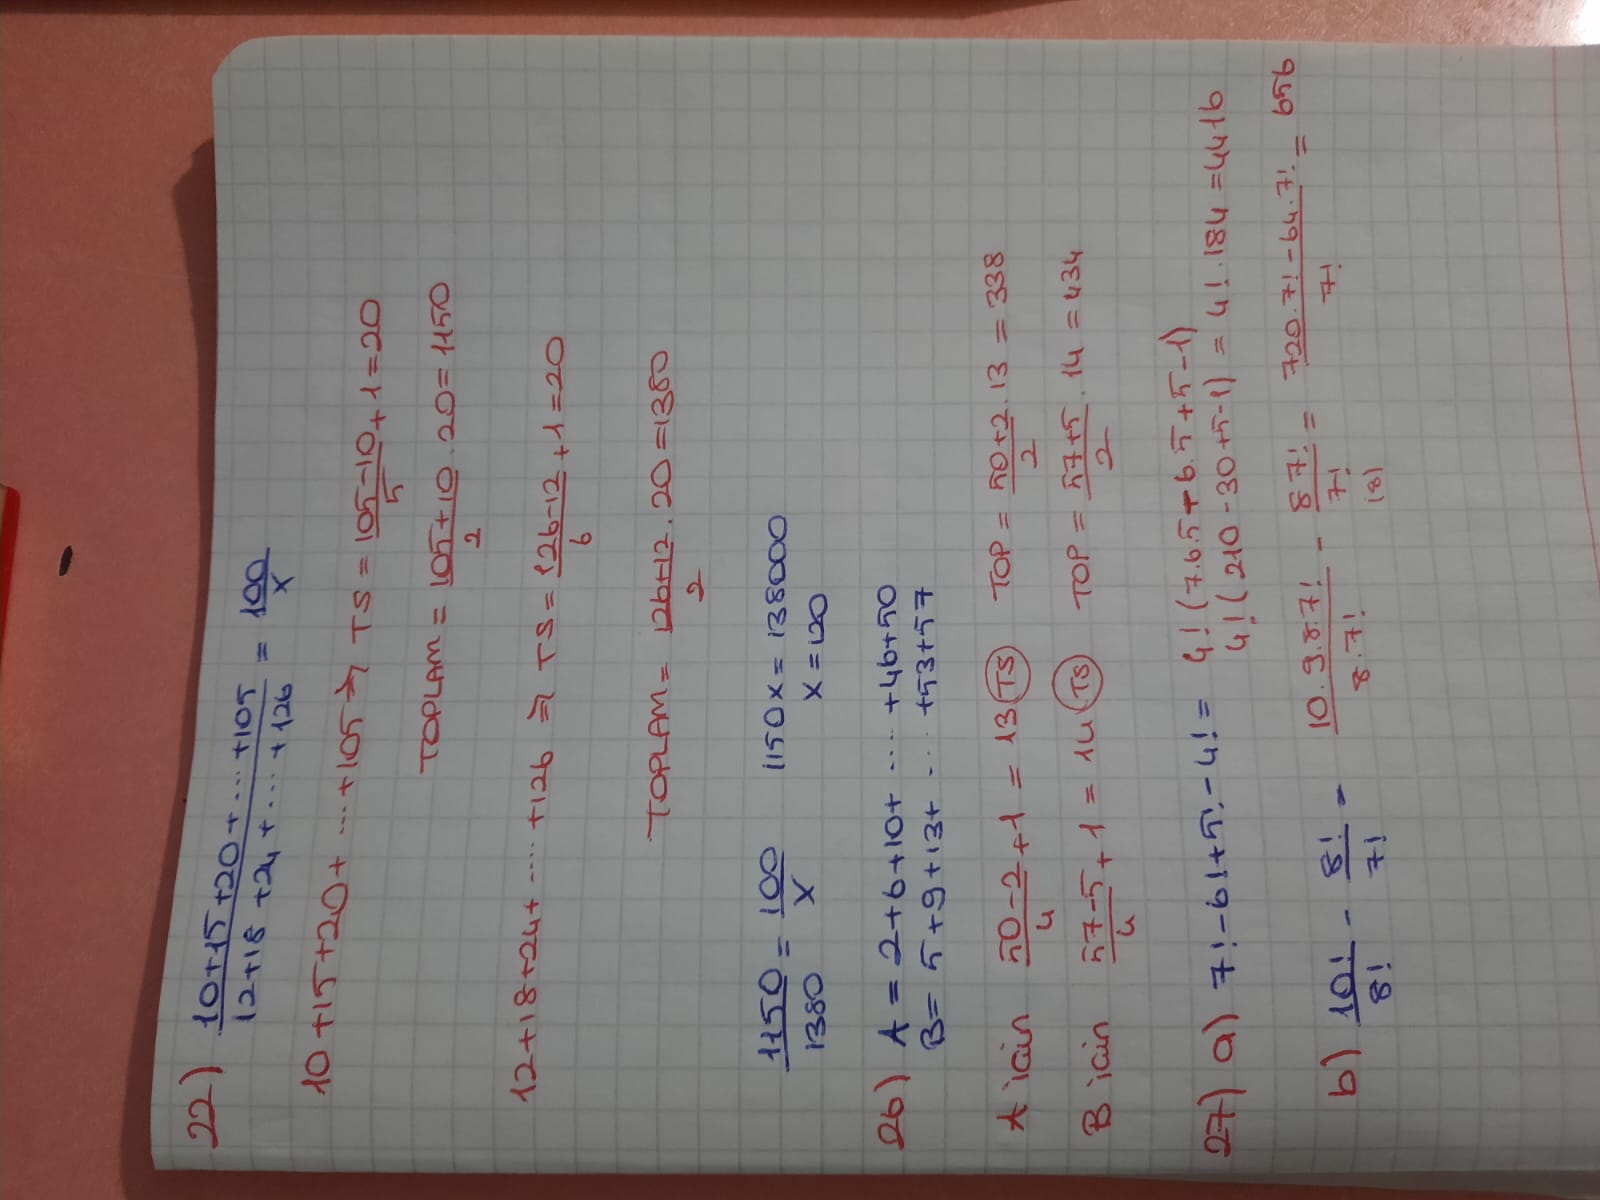 22) 10+15+20+....+105 / 12+18+24+....+126 = 100/x
10+15+20+....+105 ⇒ TS = 105-10/5 + 1 = 20
TOPLAM = 105+10/2 . 20 = 1150
12+18+24+....+126 ⇒ TS = 126-12/6 + 1 = 20
TOPLAM = 126+12/2 . 20 = 1380
1150/1380 = 100/x 1150x = 138000
x = 120
26) A = 2+6+10+ .... +46+50
B = 5+9+13+ .... +53+57
A için 50-2/4 + 1 = 13 TS TOP = 50+2/2 . 13 = 338
B için 57-5/4 + 1 = 14 TS TOP = 57+5/2 . 14 = 434
27) a) 7! - 6! + 5! - 4! = 4! (7.6.5 + 6.5 + 5 - 1)
4! (210 - 30 + 5 - 1) = 4! . 184 = 4416
b) 10!/8! - 8!/7! = 10.9.8.7!/8.7! - 8 7!/7! = 720.7! - 64.7!/7! = 656
(8)